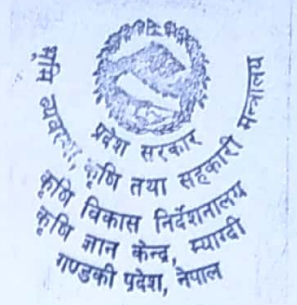 प्रदेश सरकार
भूमि व्यवस्था, कृषि तथा सहकारी मन्त्रालय
कृषि विकास निर्देशनालय
कृषि ज्ञान केन्द्र, म्याग्दी
गण्डकी प्रदेश, नेपाल